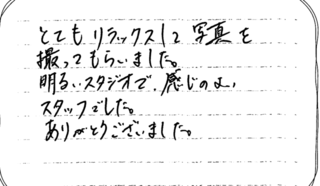 とてもリラックスして写真を
撮ってもらいました。
明るいスタジオで、感じのよい
スタッフでした。
ありがとうございました。